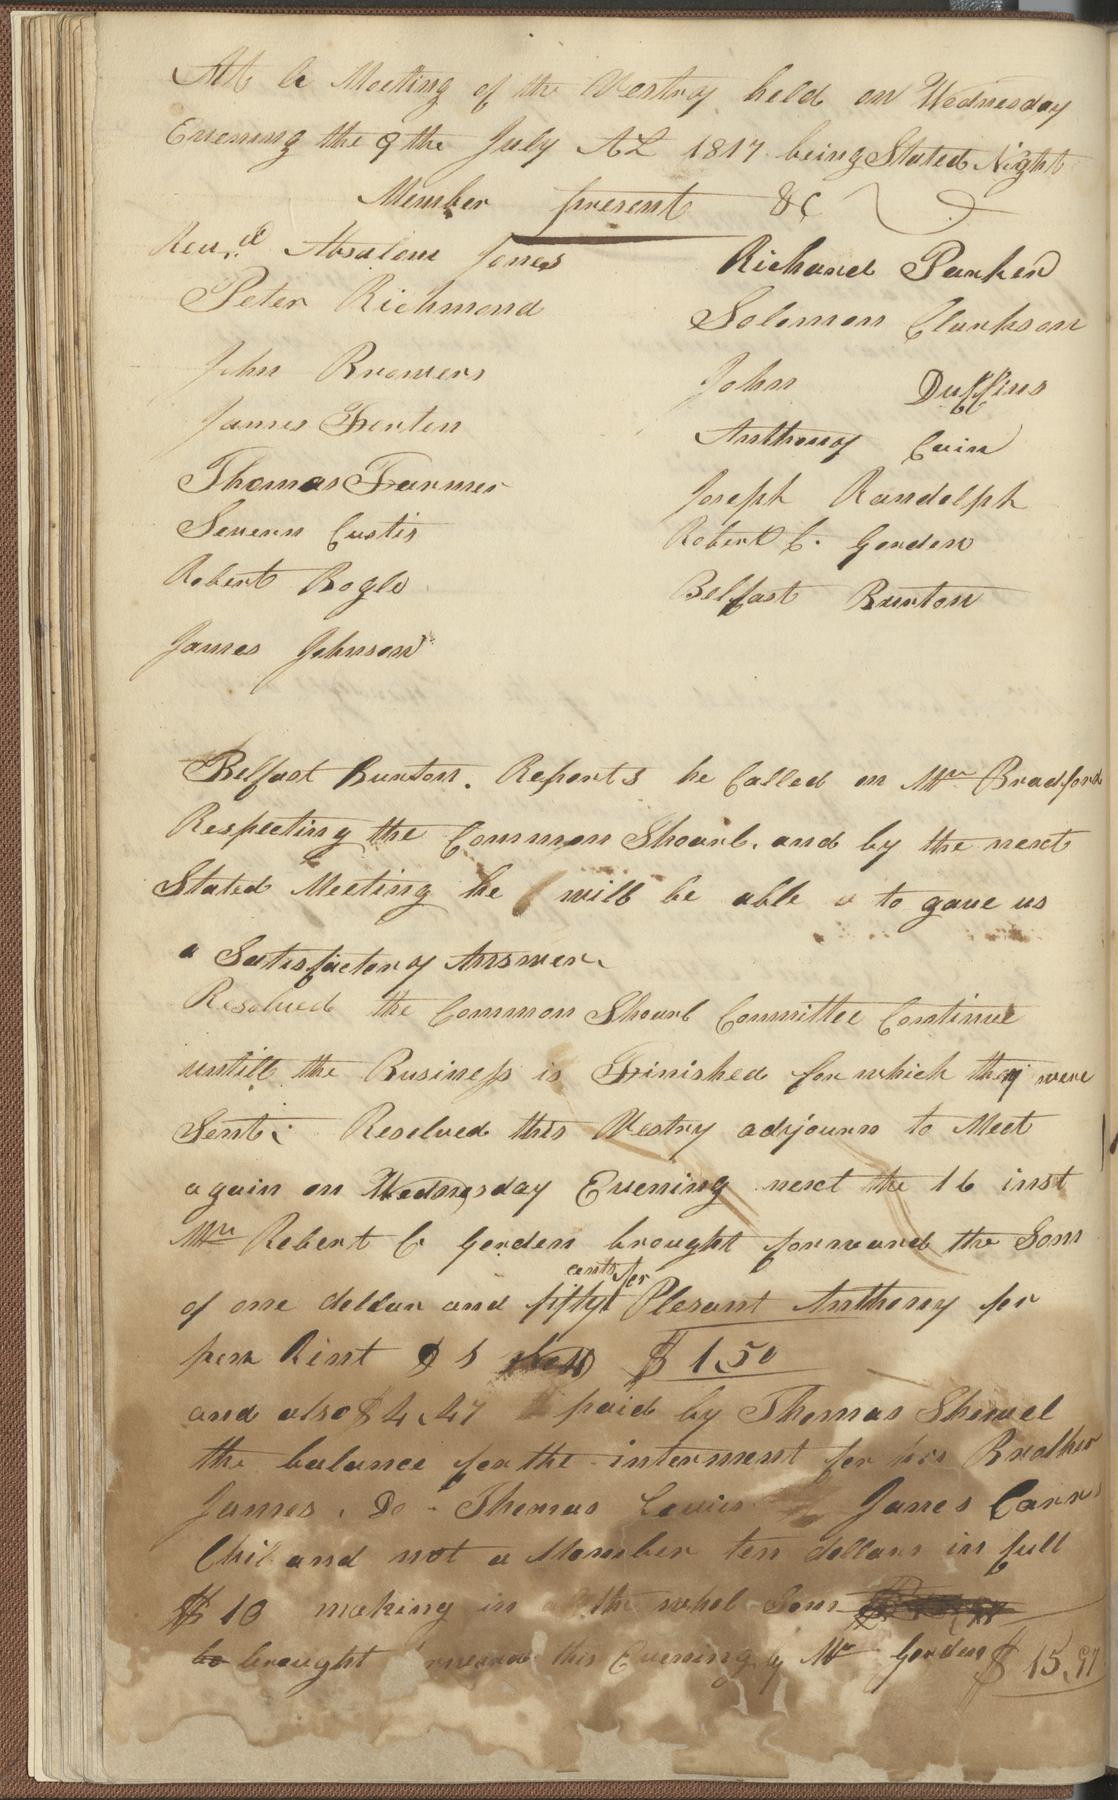 At a Meeting of the Vestry held on Wednesday
Evening the 9 the July AL 1817 being Stated Night
Member present &c
Revd Absalom Jones
Peter Richmond
John Browers
James Trenten
Thomas Farmer
Severn Custis
Robert Bogle
James Johnson
Richard Parker
Solomon Clarkson
John Duffins
Anthony Cain
Joseph Randolph
Robert C. Gorden
Belfast Burton
Belfast Burton. Reports he Called on Mr Bradford
Respecting the Common Shourl. and by the next
Stated Meeting he will be able to gave us
a Satisfactory Answer
Resolved the Common Shourl Committee Continue
untill the Business is Finished for which they were
Sent. Resolved this Vestry adjourn to Meet
again on Wednesday Evening next the 16 inst
Mr Robert C Gorden brought forward the Som
cents for
of one dollar and fifty Plesant Anthony for
pew Rint $ 1.50
and also $ 4.47 paid by Thomas Shewel
the balance for the interment for his Brother
James. Do - Thomas Louis James Carr
Chil and not a Member ten dollars in full
$ 10 making in the whol Som
to brought this Evening by Mr Gorden $ 15.97